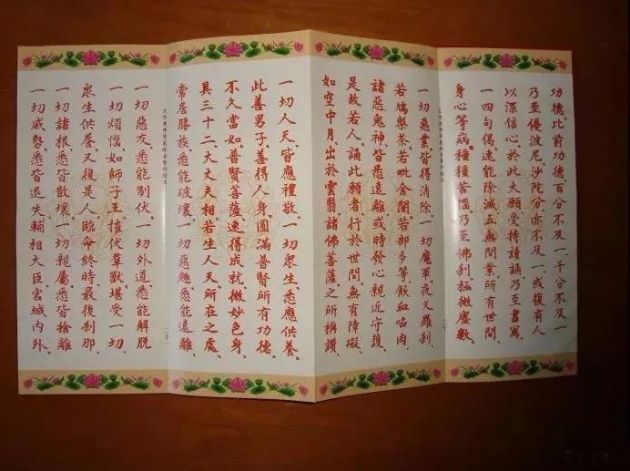 功德。比前功德。百分不及一。千分不及一
乃至優波尼沙陀分。亦不及一。或復有人
以深信心。於此大願。受持讀誦。乃至書寫
一四句偈。速能除滅五無間業。所有世間
身心等病。種種苦惱。乃至佛剎極微塵數
一切惡業。皆得消除。一切魔軍。夜叉羅剎
若鳩槃荼。若毗舍闍。若部多等。飲血啗肉
諸惡鬼神。皆悉遠離。或時發心。親近守護
是故若人。誦此願者。行於世間。無有障礙
如空中月。出於雲翳。諸佛菩薩。之所稱讚
一切人天。皆應禮敬。一切眾生。悉應供養
此善男子。善得人身。圓滿普賢。所有功德
不久當如。普賢菩薩。速得成就。微妙色身
具三十二。大丈夫相。若生人天。所在之處
常居勝族。悉能破壞。一切惡趣。悉能遠離
一切惡友。悉能制伏。一切外道。悉能解脫
一切煩惱。如師子王。摧伏羣獸。堪受一切
眾生供養。又復是人。臨命終時。最後剎那
一切諸根。悉皆散壞。一切親屬。悉皆捨離
一切威勢。悉皆退失。輔相大臣。宮城內外